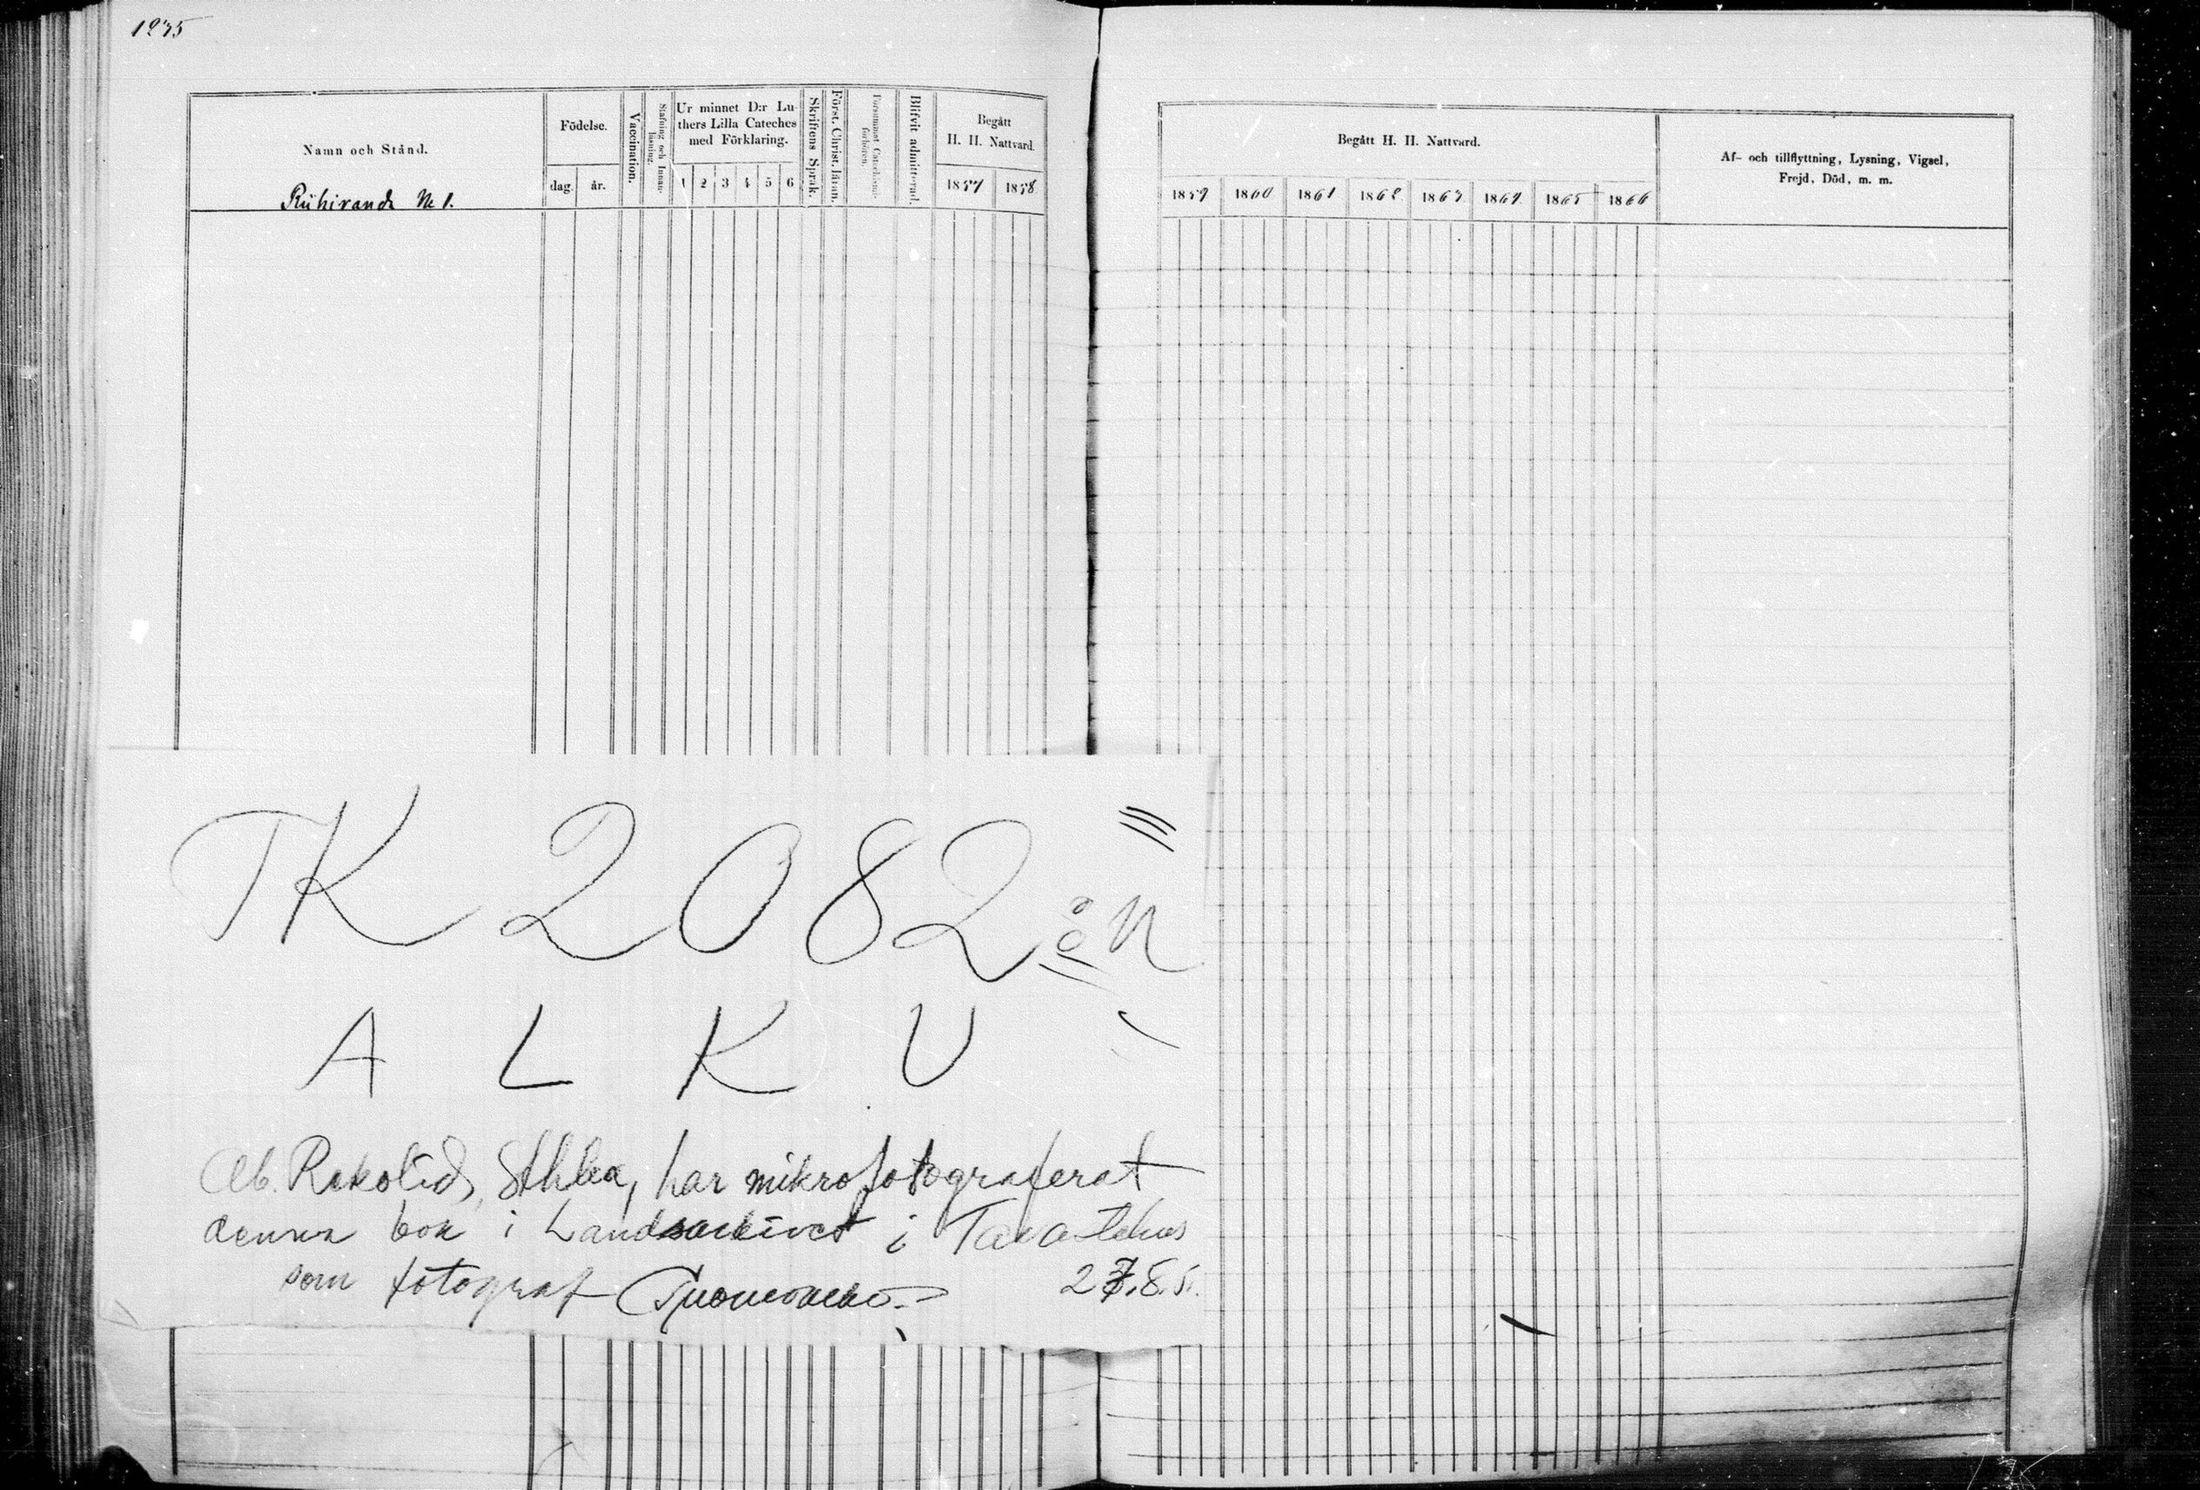 1235
Namn och Stånd.
Riihiranda N:o 1.
Födelse.
dag. år.
Vaccination.
Stafning och Innanläsning.
Ur minnet D:r Luthers Lilla Cateches med Förklaring.
1 2 3 4 5 6
Skriftens Språk.
Först. Christ. läran.
Försummat Catechismiförhören.
Blifvit admitterad.
Begått
H. H. Nattvard.
1857 1858
Begått H. H. Nattvard.
1859 1860 1861 1862 1863 1864 1865 1866
Af- och tillflyttning, Lysning, Vigsel,
Frejd, Död, m. m.
TK 2082:n
A L K U
Ab. Rekolid, Sthlm, har mikrofotograferat
denna bok i Landsarkivet i Tavastehus
som fotograf